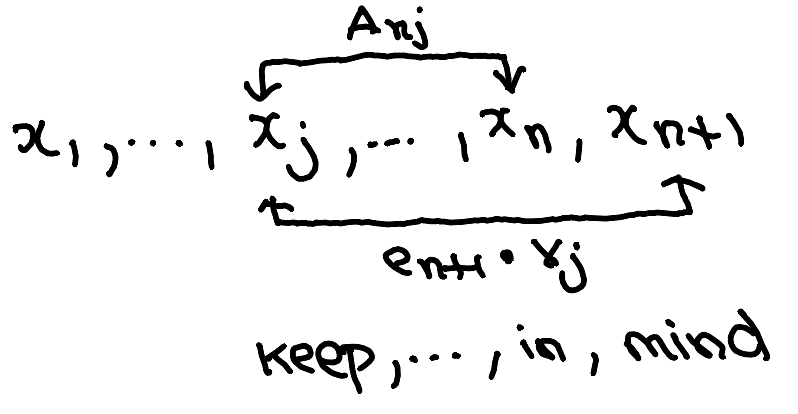 Anj
x₁,...,xⱼ,...,xₙ,xₙ₊₁
eₙ₊₁·γⱼ
keep,...,in,mind